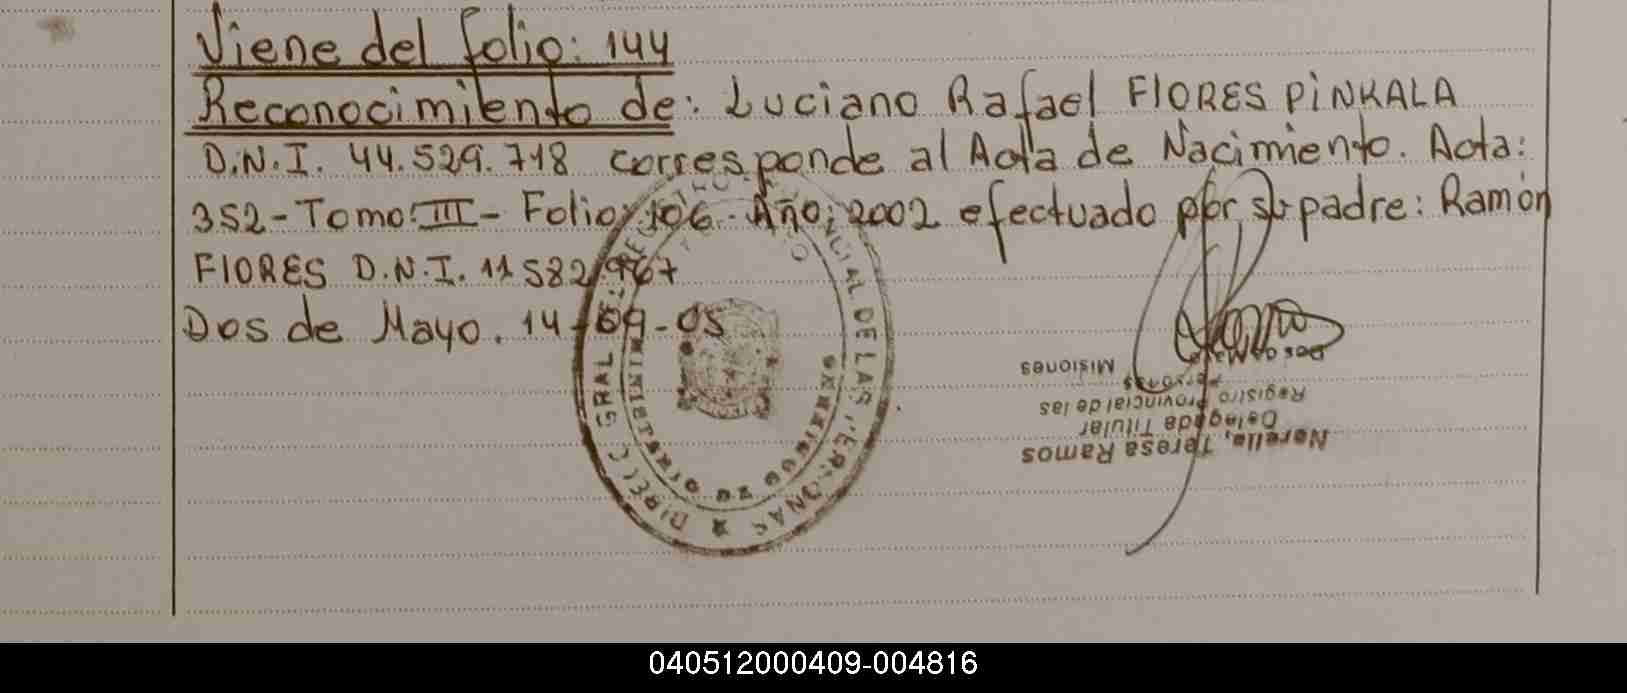 Viene del folio: 144
Reconocimiento de: Luciano Rafael FlORES PiNKALA
D.N.I. 44.529.718 corresponde al Acta de Nacimiento. Acta:
352 - Tomo: III - Folio: 106 - Año: 2002 efectuado por su padre: Ramón
FlORES D.N.I. 11.582.967
Dos de Mayo. 14-09-05
DIREC. GRAL. DEL REGISTRO PROVINCIAL DE LAS PERSONAS
MINISTERIO DE GOBIERNO
Norelia, Teresa Ramos
Delegada Titular
Registro Provincial de las
Personas
Dos de Mayo
Misiones
040512000409-004816